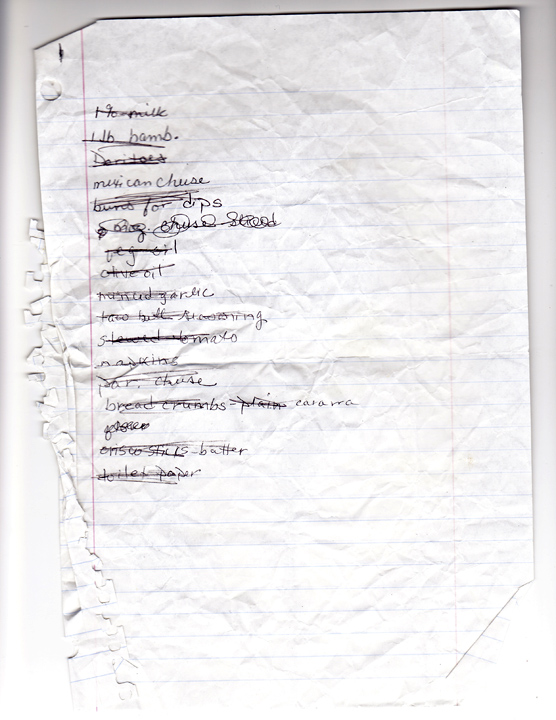 1% milk
1 lb hamb.
Doritoes
mexican cheese
buns for dps
cheese
veg oil
olive oil
minced garlic
taco bell seasoning
stewed tomato
napkins
par. cheese
bread crumbs - plain
batter
toilet paper